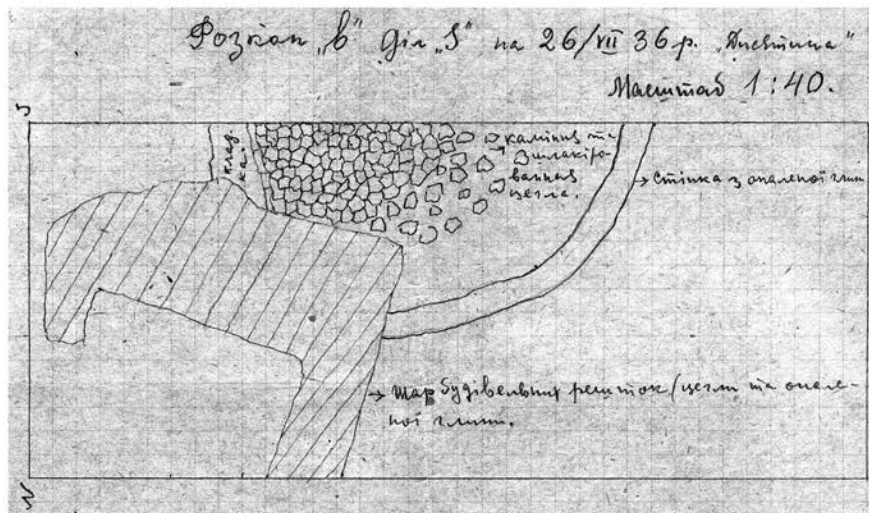 Розкоп „б" діл „S" на 26/VII 36 р.
Масштаб 1:40.
S
клад-
ка.
каміння та
шлакіро-
ванная
цегла.
Стінка з опаленої глин
Шар будівельних решток (цегли та опале-
ної глини.
N